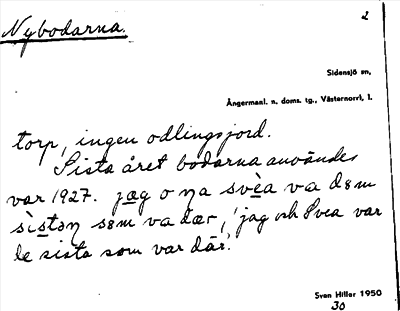 Nybodarna.
2
Sidensjö sn,
Ångermanl. n. doms. tg., Västernorrl. l.
torp, ingen odlingsjord.
Sista året bodarna användes
var 1927. jag o na svèa va dem
sìstən səm va dær, 'jag och Svea var
de sista som var där.'
Sven Hiller 1950
30